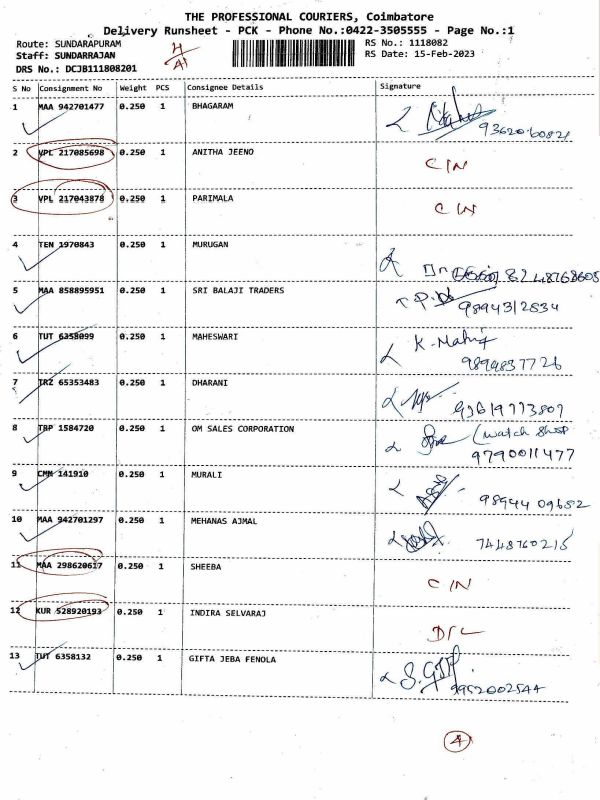 THE PROFESSIONAL COURIERS, Coimbatore
Delivery Runsheet - PCK - Phone No.:0422-3505555 - Page No.:1
Route: SUNDARAPURAM RS No.: 1118082
Staff: SUNDARRAJAN RS Date: 15-Feb-2023
DRS No.: DCJB111808201
S No Consignment No Weight PCS Consignee Details Signature
1 MAA 942701477 0.250 1 BHAGARAM
2 VPL 217085698 0.250 1 ANITHA JEENO C/N
3 VPL 217043878 0.250 1 PARIMALA C/N
4 TEN 1970843 0.250 1 MURUGAN
8248768605
5 MAA 858895951 0.250 1 SRI BALAJI TRADERS
9894312834
6 TUT 6358099 0.250 1 MAHESWARI
9894837726
7 TRZ 65353483 0.250 1 DHARANI
8 TRP 1584720 0.250 1 OM SALES CORPORATION (watch shop
9790011477
9 CMM 141910 0.250 1 MURALI
98944 09682
10 MAA 942701297 0.250 1 MEHANAS AJMAL
7448760215
11 MAA 298620617 0.250 1 SHEEBA C/N
12 KUR 528920193 0.250 1 INDIRA SELVARAJ D/L
13 TUT 6358132 0.250 1 GIFTA JEBA FENOLA
9952002544
4